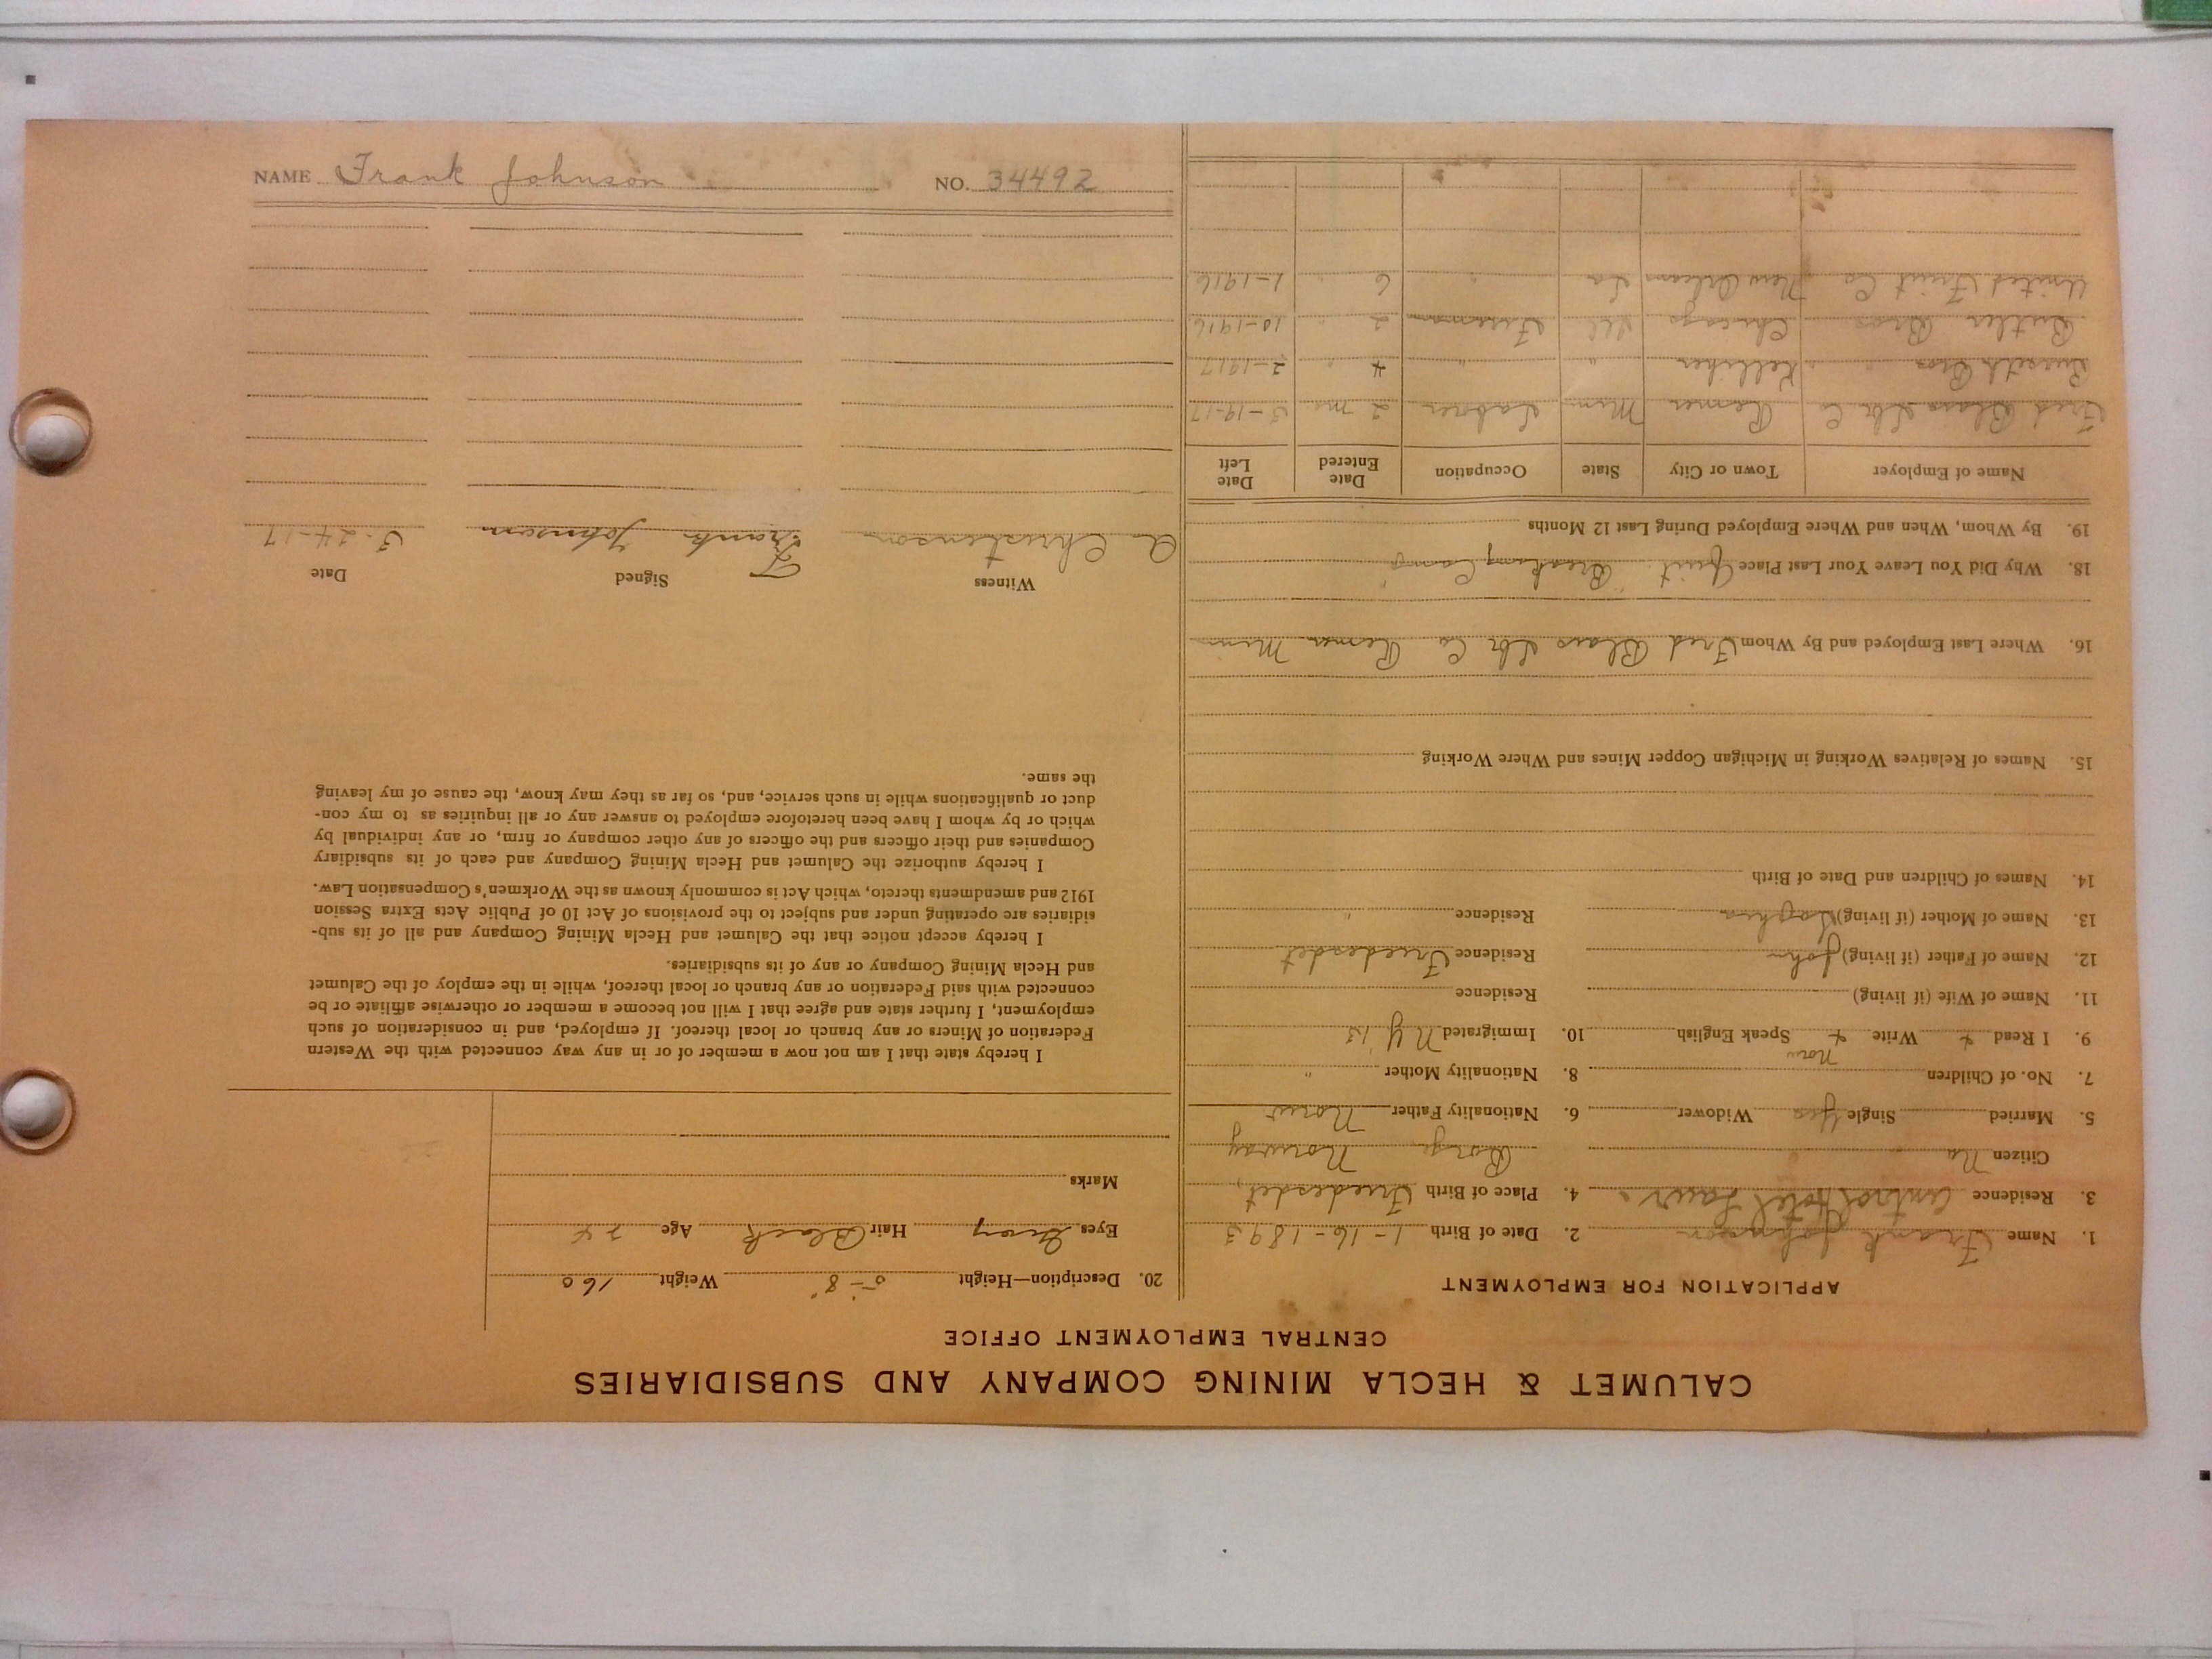 CALUMET & HECLA MINING COMPANY AND SUBSIDIARIES
CENTRAL EMPLOYMENT OFFICE
APPLICATION FOR EMPLOYMENT
1. Name Frank Johnson 2. Date of Birth 1-16-1893
3. Residence Central Hotel 4. Place of Birth
Citizen No Norway
5. Married Single Yes Widower 6. Nationality Father Norw
7. No. of Children 8. Nationality Mother "
9. I Read + Write + Speak English Norw 10. Immigrated N Y
11. Name of Wife (if living) Residence
12. Name of Father (if living) John Residence
13. Name of Mother (if living) Residence "
14. Names of Children and Date of Birth
15. Names of Relatives Working in Michigan Copper Mines and Where Working
16. Where Last Employed and By Whom Fred Blais Lbr Co Remer Minn
18. Why Did You Leave Your Last Place Quit Breaking Camp
19. By Whom, When and Where Employed During Last 12 Months
Name of Employer Town or City State Occupation Date Entered Date Left
Fred Blais Lbr Co Remer Minn Laborer 2 mo 3-19-17
Bros Kelliher " " 4 " 2-1917
Butler Bros Chicago Ill Fireman 2 " 10-1916
United Fruit Co New Orleans La " 6 " 1-1916
20. Description—Height 5-8" Weight 160
Eyes Gray Hair Black Age 24
Marks
I hereby state that I am not now a member of or in any way connected with the Western
Federation of Miners or any branch or local thereof. If employed, and in consideration of such
employment, I further state and agree that I will not become a member or otherwise affiliate or be
connected with said Federation or any branch or local thereof, while in the employ of the Calumet
and Hecla Mining Company or any of its subsidiaries.
I hereby accept notice that the Calumet and Hecla Mining Company and all of its sub-
sidiaries are operating under and subject to the provisions of Act 10 of Public Acts Extra Session
1912 and amendments thereto, which Act is commonly known as the Workmen's Compensation Law.
I hereby authorize the Calumet and Hecla Mining Company and each of its subsidiary
Companies and their officers and the officers of any other company or firm, or any individual by
which or by whom I have been heretofore employed to answer any or all inquiries as to my con-
duct or qualifications while in such service, and, so far as they may know, the cause of my leaving
the same.
Witness Signed Date
A Christenson Frank Johnson 3-24-17
NAME Frank Johnson NO. 34492